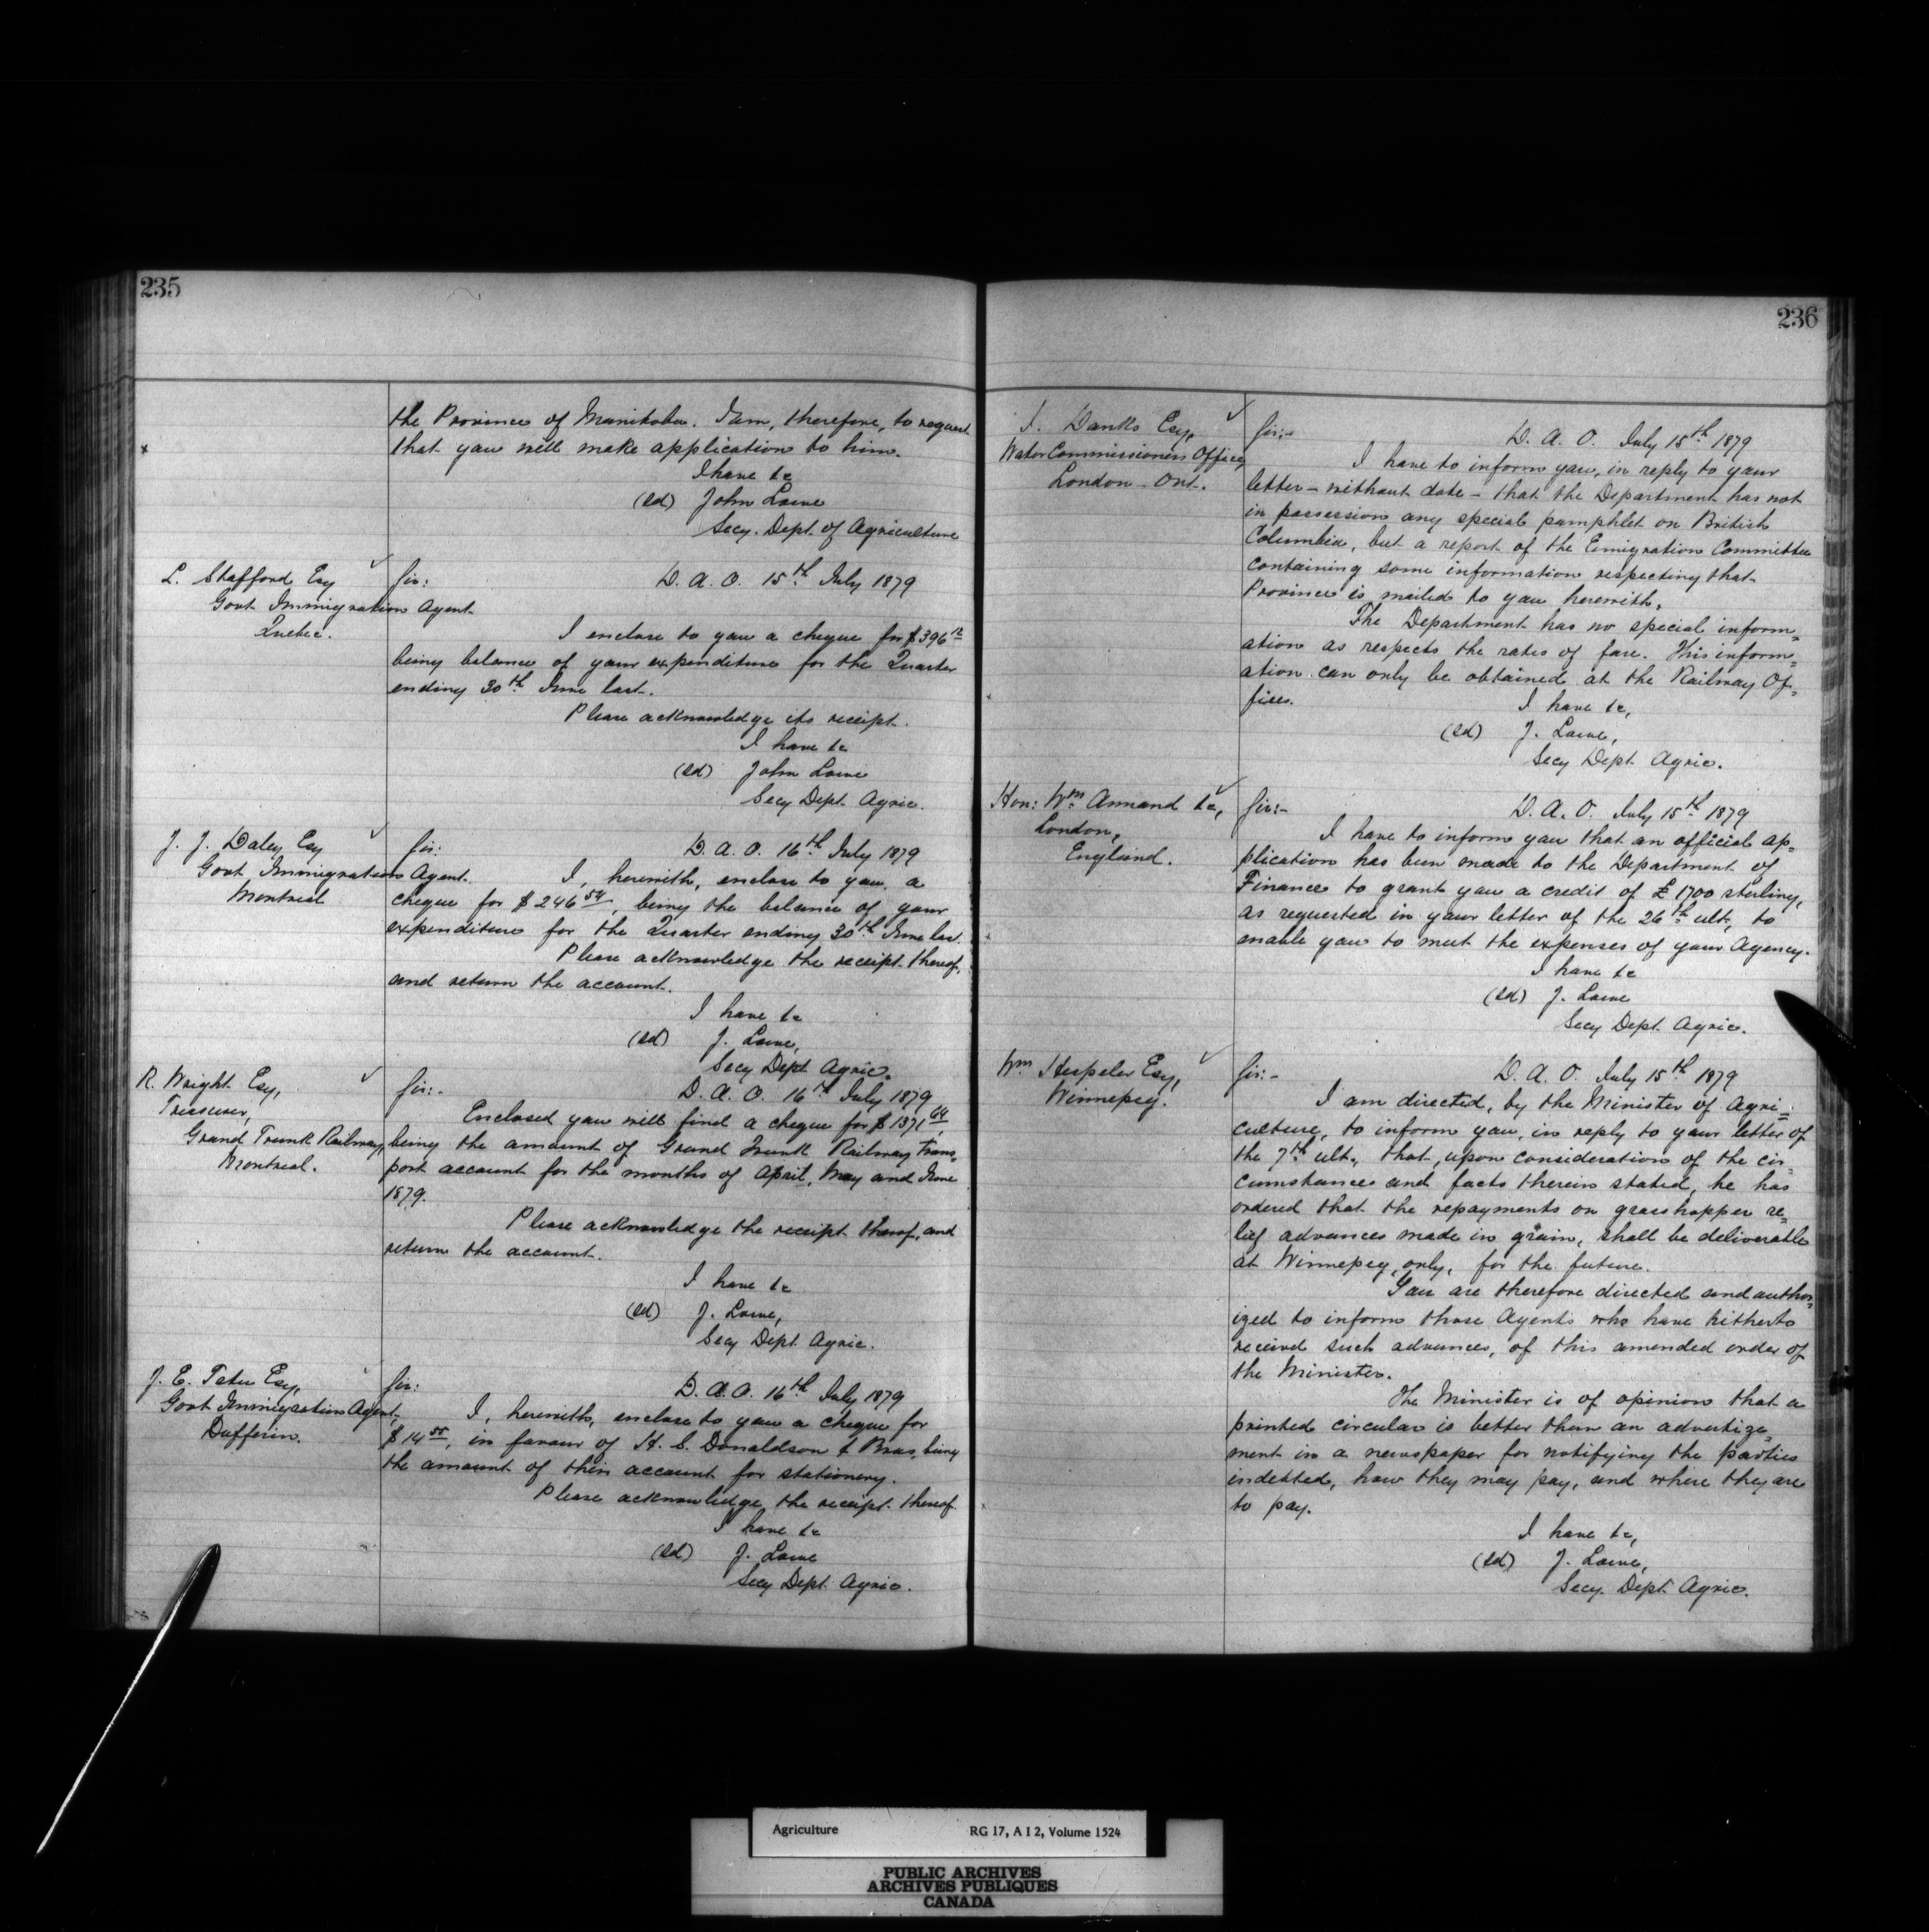 235
the Province of Manitoba. I am, therefore, to request
that you will make application to him.
I have &c
(sd) John Lowe
Secy. Dept. of Agriculture
L. Stafford Esq
Govt Immigration Agent
Quebec.
Sir:
D. A. O. 15th July 1879
I enclose to you a cheque for $396 12
being balance of your expenditure for the Quarter
ending 30th June last.
Please acknowledge its receipt.
I have &c
(sd) John Lowe
Secy Dept. Agric.
J. J. Daley Esq
Govt Immigration Agent.
Montreal
Sir:
D. A. O. 16th July 1879
I, herewith, enclose to you, a
cheque for $246 54, being the balance of your
expenditure for the Quarter ending 30th June last.
Please acknowledge the receipt thereof,
and return the account.
I have &c
(sd) J. Lowe,
Secy Dept Agric.
R. Wright Esq,
Treasurer,
Grand Trunk Railway,
Montreal.
Sir:-
D. A. O. 16th July 1879
Enclosed you will find a cheque for $1371 64,
being the amount of Grand Trunk Railway trans=
port account for the months of April, May and June
1879.
Please acknowledge the receipt thereof, and
return the account.
I have &c
(sd) J. Lowe,
Secy Dept. Agric.
J. E. Tetu Esq,
Govt Immigration Agent.
Dufferin.
Sir:
D. A. O. 16th July 1879
I, herewith, enclose to you a cheque for
$14 55, in favour of H. S. Donaldson & Bros, being
the amount of their account for stationery.
Please acknowledge the receipt thereof.
I have &c
(sd) J. Lowe
Secy Dept. Agric.
236
Danks Esq,
Water Commissioners Office,
London - Ont.
Sir:-
D. A. O. July 15th 1879
I have to inform you, in reply to your
letter - without date - that the Department has not
in possession any special pamphlet on British
Columbia, but a report of the Emigration Committee
containing some information respecting that
Province is mailed to you herewith.
The Department has no special inform=
ation as respects the rates of fare. This inform=
ation can only be obtained at the Railway Of=
fices.
I have &c,
(sd) J. Lowe,
Secy Dept. Agric.
Hon: Wm Annand &c,
London,
England.
Sir:-
D. A. O. July 15th 1879
I have to inform you that an official ap=
plication has been made to the Department of
Finance to grant you a credit of £1700 sterling,
as requested in your letter of the 26th ult, to
enable you to meet the expenses of your Agency.
I have &c
(sd) J. Lowe
Secy Dept. Agric.
Wm Hespeler Esq,
Winnepeg.
Sir:-
D. A. O. July 15th 1879
I am directed, by the Minister of Agri=
culture, to inform you, in reply to your letter of
the 7th ult, that, upon consideration of the cir=
cumstances and facts therein stated, he has
ordered that the repayments on grasshopper re=
lief advances made in grain, shall be deliverable
at Winnepeg, only, for the future.
You are therefore directed and author=
ized to inform those Agents who have hitherto
received such advances, of this amended order of
the Minister.
The Minister is of opinion that a
printed circular is better than an advertize=
ment in a newspaper for notifying the parties
indebted, how they may pay, and where they are
to pay.
I have &c,
(sd) J. Lowe,
Secy. Dept. Agric.
Agriculture RG 17, A I 2, Volume 1524
PUBLIC ARCHIVES
ARCHIVES PUBLIQUES
CANADA